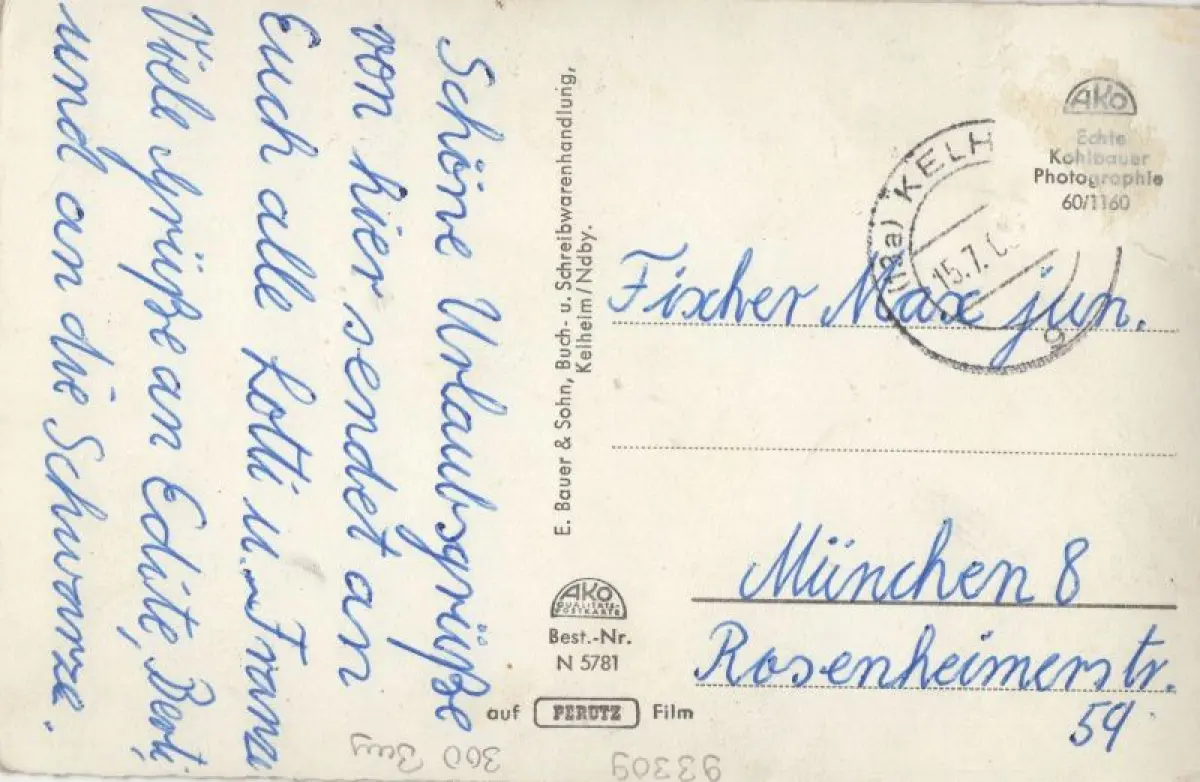 Schöne Urlaubsgrüße
von hier sendet an
Euch alle Lotti u. Franz
Viele Grüße an Edite, Berti,
und an die Schwarze.
E. Bauer & Sohn, Buch- u. Schreibwarenhandlung,
Kelheim/Ndby.
AKO
QUALITÄTS-
POSTKARTE
Best.-Nr.
N 5781
auf PERUTZ Film
AKO
Echte
Kohlbauer
Photographie
60/1160
(13a) KELH
15.7.6
Fischer Max jun.
München 8
Rosenheimerstr.
59
93309